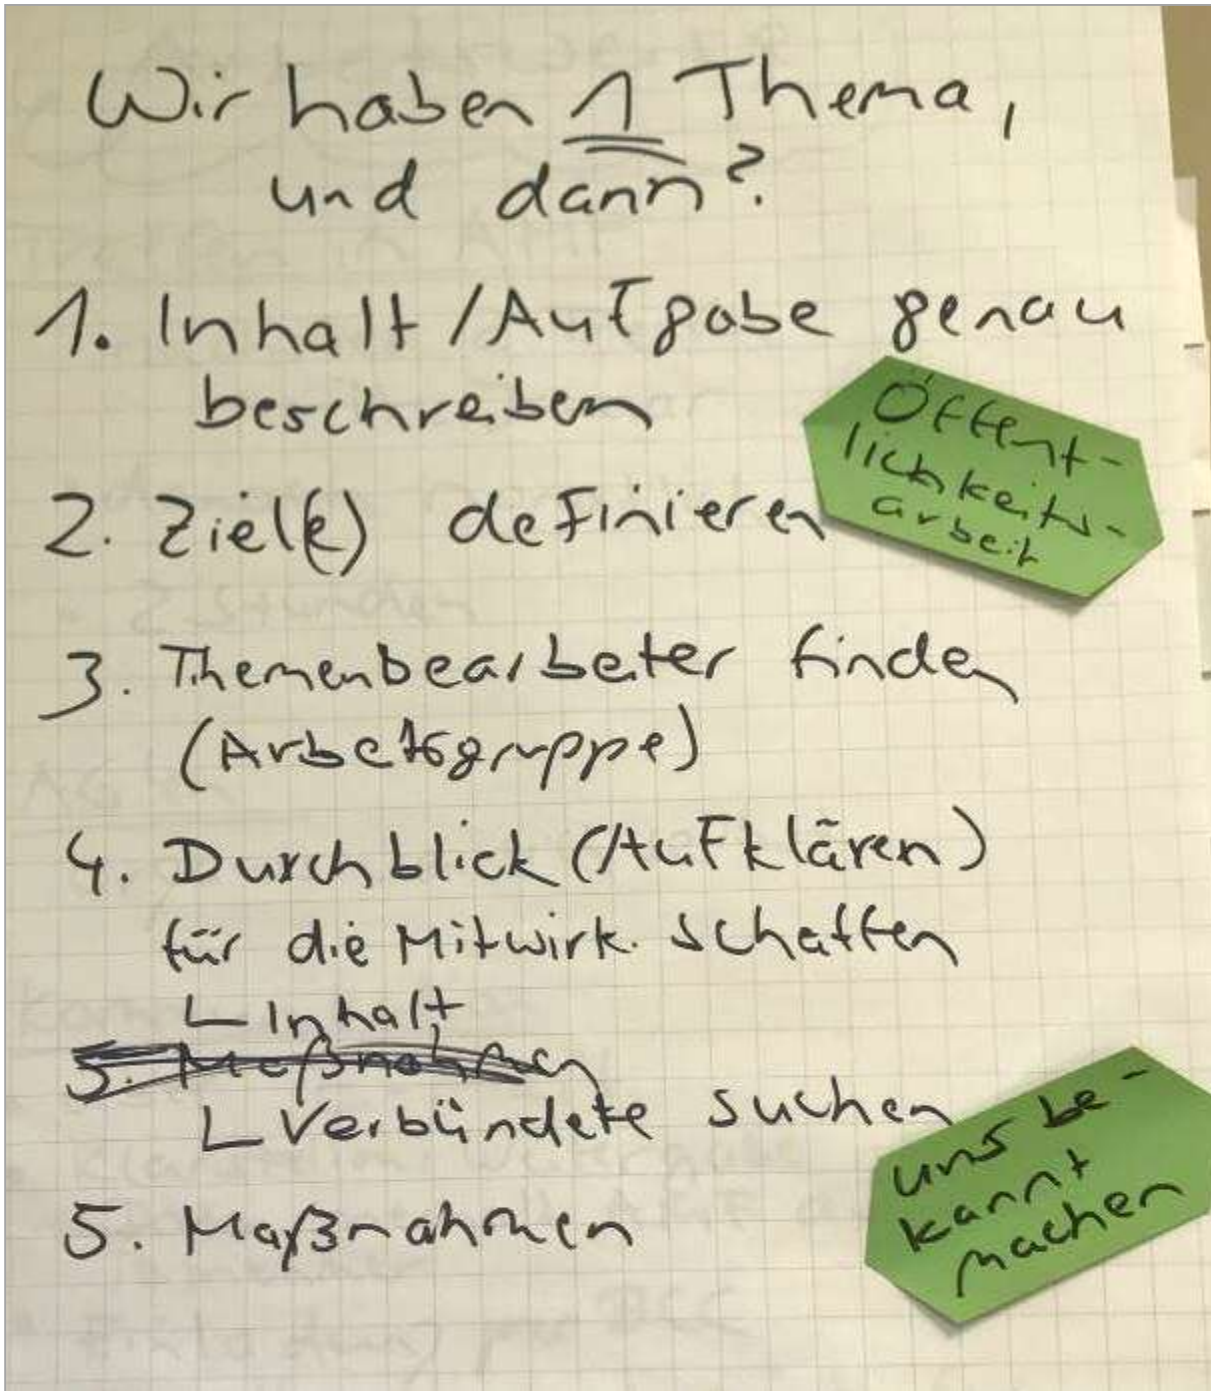 Wir haben 1 Thema,
und dann?
1. Inhalt / Aufgabe genau
beschreiben
Öffent-
lichkeits-
arbeit
2. Ziel(e) definieren
3. Themenbearbeiter finden
(Arbeitsgruppe)
4. Durchblick (Aufklären)
für die Mitwirk. schaffen
Inhalt
5. Maßnahmen
Verbündete suchen
uns be-
kannt
machen
5. Maßnahmen